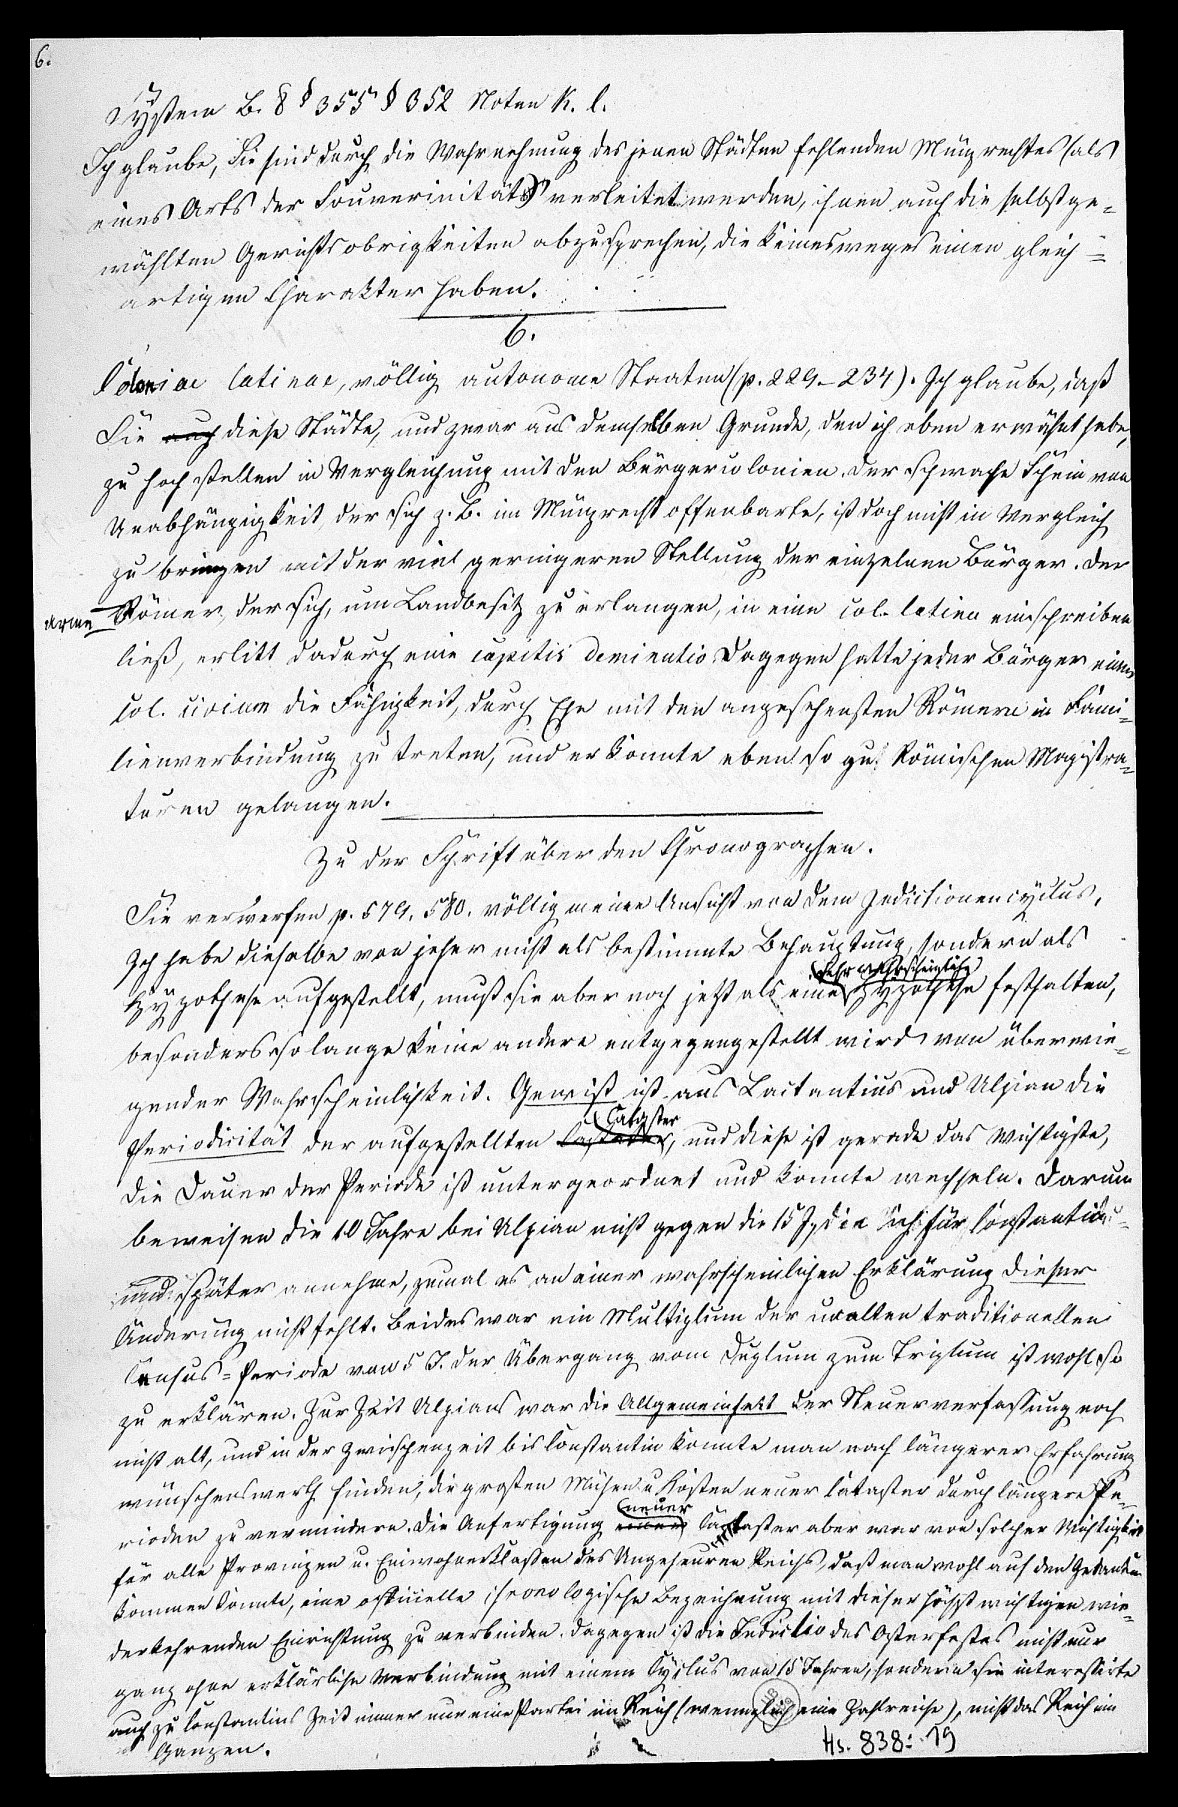 6.
System B. 8 § 355 § 352 Noten k. l.
Ich glaube, Sie sind durch die Wahrnehmung des jenen Städten fehlenden Münzrechtes (als
eines Akts der Souverinität) verleitet worden, ihnen auch die selbstge-
wählten Gerichtsobrigkeiten abzusprechen, die keineswegs einen gleich-
artigen Charakter haben.
6.
Coloniae latinae, völlig autonome Staaten (p. 229-234). Ich glaube, daß
Sie auch diese Städte, und zwar aus demselben Grunde, den ich eben erwähnt habe,
zu hoch stellen in Vergleichung mit den Bürgercolonien. Der schwache Schein von
Unabhängigkeit der sich z. B. im Münzrecht offenbarte, ist doch nicht in Vergleich
zu bringen mit der viel geringeren Stellung der einzelnen Bürger. Der
arme Römer der sich, um Landbesitz zu erlangen, in eine col. latina einschreiben
ließ, erlitt dadurch eine capitis deminutio Dagegen hatte jeder Bürger einer
col. civium die Fähigkeit, durch Ehe mit den angesehensten Römern in Fami-
lienverbindung zu treten, und er konnte eben so zu Römischen Magistra-
turen gelangen.
Zu der Schrift über den Chronographen.
Sie verwerfen p. 579. 580. völlig meine Ansicht von dem Indictionencyclus.
Ich habe dieselbe von jeher nicht als bestimmte Behauptung, sondern als
Hypothese aufgestellt, muß sie aber noch jetzt als eine sehr wahrscheinliche Hypothese festhalten,
besonders solange keine andere entgegengestellt wird von überwie-
gender Wahrscheinlichkeit. Gewiß ist aus Lactantius und Ulpian die
Periodicität der aufgestellten Cataster, und diese ist gerade das Wichtigste,
die Dauer der Periode ist untergeordnet und konnte wechseln. Darum
beweisen die 10 Jahre bei Ulpian nicht gegen die 15 J, die ich für Constantin
und später annehme, zumal es an einer wahrscheinlichen Erklärung dieser
Änderung nicht fehlt. Beides war ein Multiplum der uralten traditionellen
Census-Periode von 5 J. Der Übergang vom Duplum zum Triplum ist wohl so
zu erklären. Zur Zeit Ulpians war die Allgemeinheit der Steuerverfassung noch
nicht alt, und in der Zwischenzeit bis Constantin konnte man nach längerer Erfahrung
wünschenswerth finden, die großen Mühen u. Kosten neuer Cataster durch längere Pe-
rioden zu vermindern. Die Anfertigung neuer Cataster aber war von solcher Wichtigkeit
für alle Provinzen u. Einwohnerklassen des Ungeheuren Reichs, daß man wohl auf den Gedanken
kommen konnte, eine officielle chronologische Bezeichnung mit dieser höchst wichtigen wie-
derkehrenden Einrichtung zu verbinden. Dagegen ist die Indictio des Osterfestes nicht nur
ganz ohne erklärliche Verbindung mit einem Cyclus von 15 Jahren, sondern sie interessirte
auch zu Constantins Zeit immer nur eine Partei im Reich (wenngleich eine Zahlreiche), nicht das Reich im
Ganzen.
Hs. 838:19